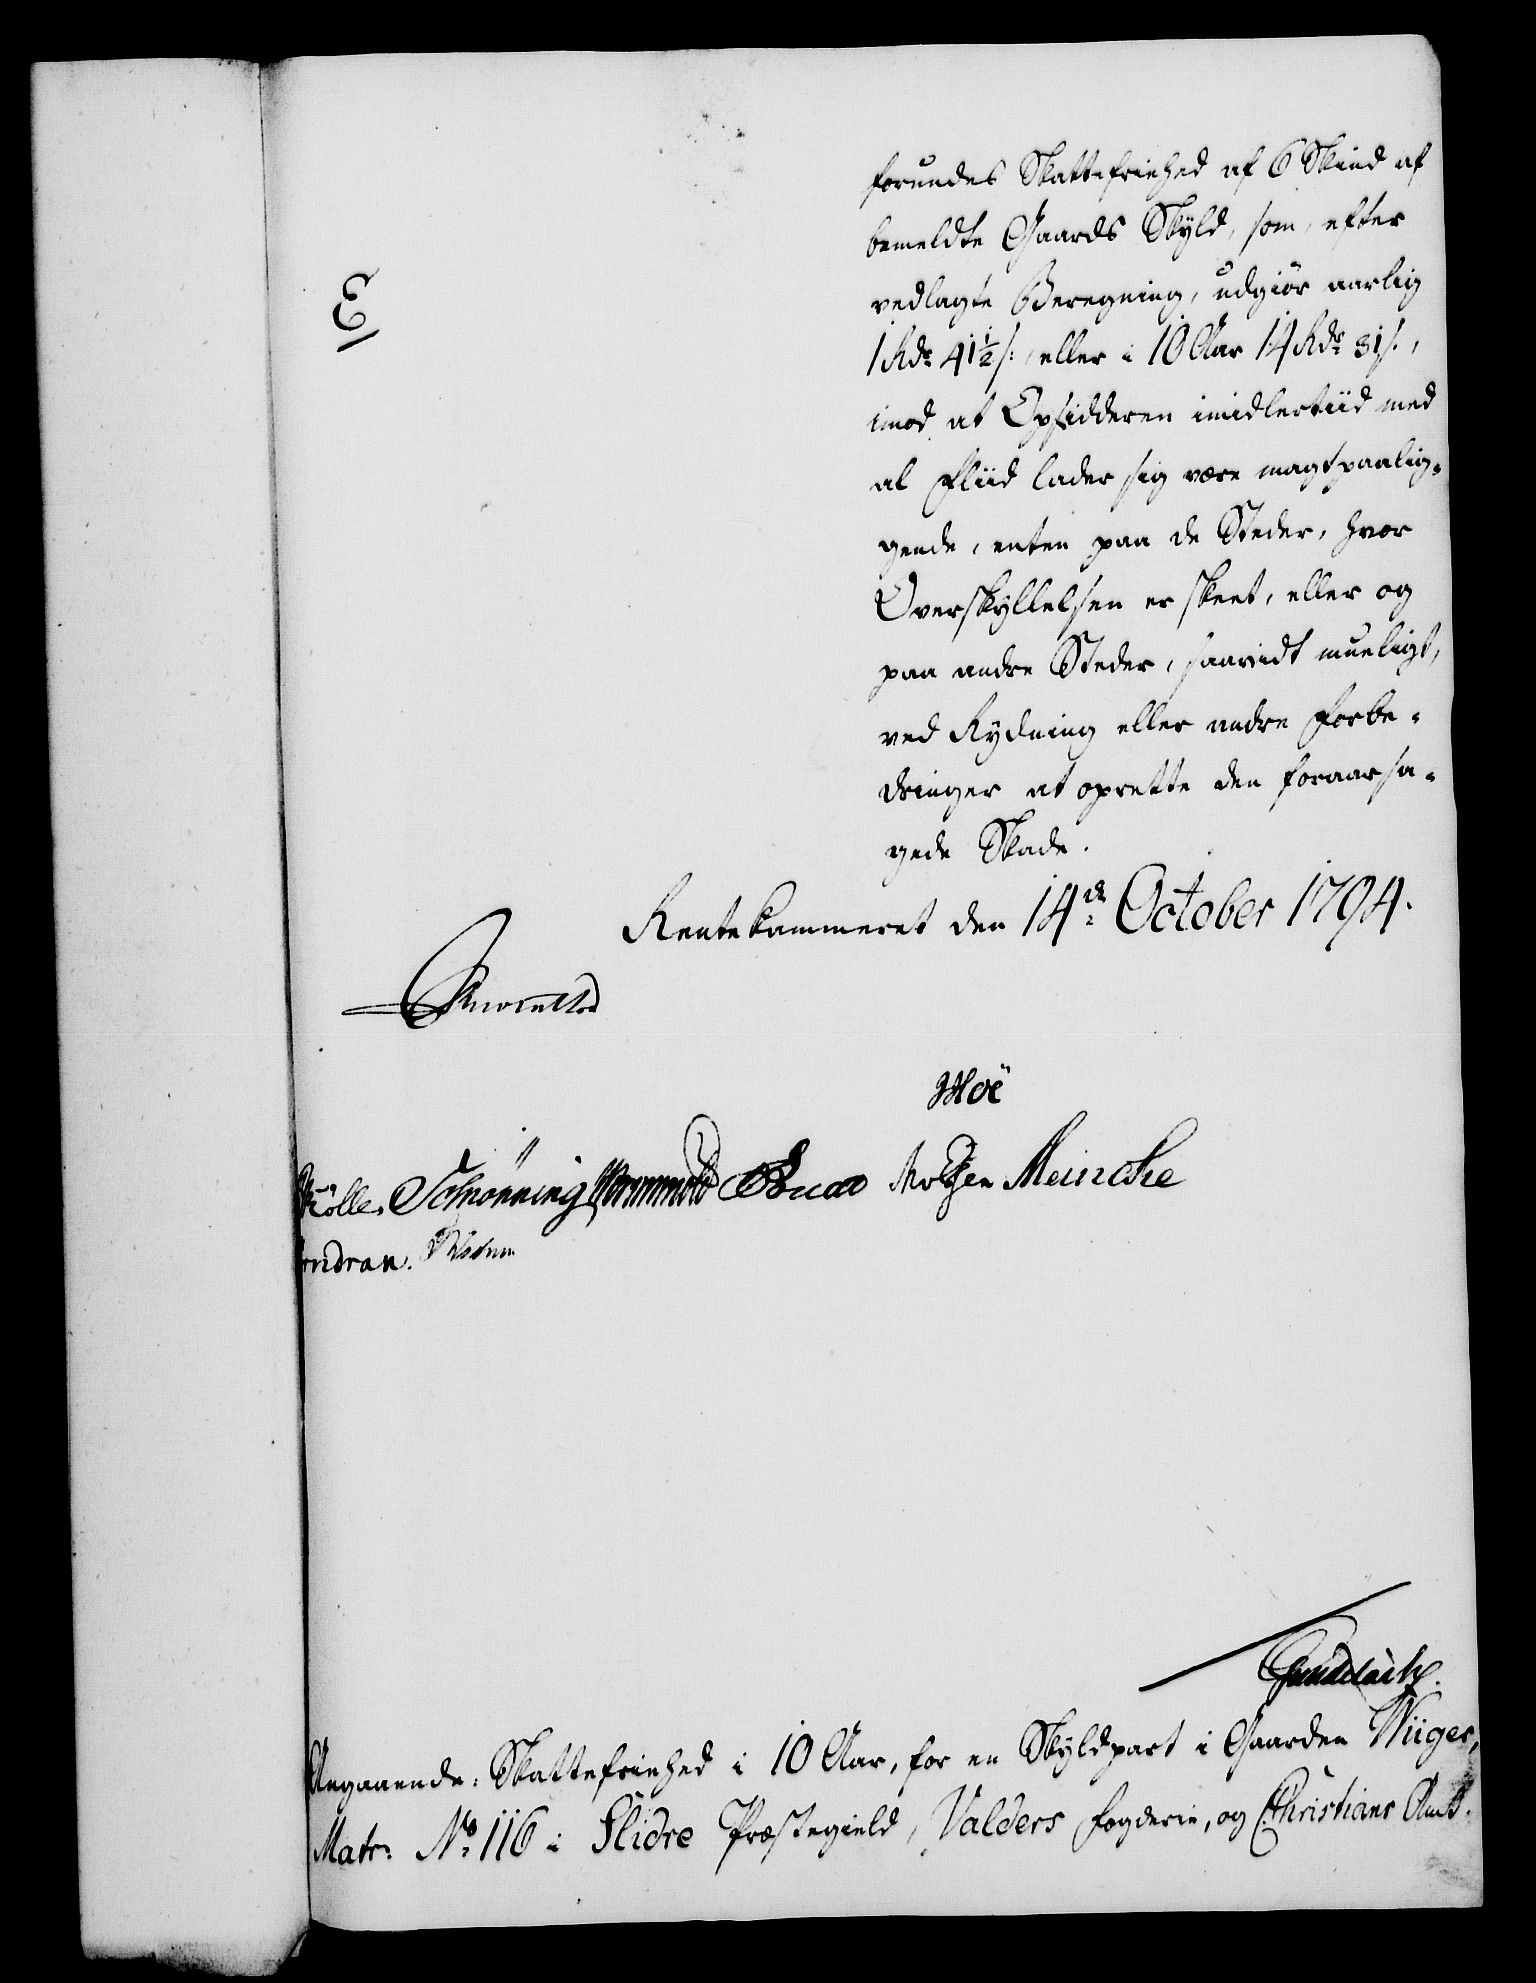 forundes Skattefriehed af 6 Skind af
bemeldte Gaards Skyld, som, efter
vedlagte Beregning, udgiör aarlig
1 Rdr 41½ s:, eller i 10 Aar 14 Rdr 31 s.,
imod at Opsidderen imidlertiid med
al Fliid lader sig være magtpaalig-
gende, enten paa de Steder, hvor
Overskyllelsen er skeet, eller og
paa andre Steder, saavidt mueligt,
ved Rydning eller andre Forbe-
dringer at oprette den foraarsa-
gede Skade.
Rentekammeret den 14de October 1794.
Moë
Möller. Schönning Wormskiold Meincke
Gundelach.
Angaaende: Skattefriehed i 10 Aar, for en Skyldpart i Gaarden Wiiger,
Matr: No 116 i Slidre Præstegield, Valders Fogderie, og Christians Amt.